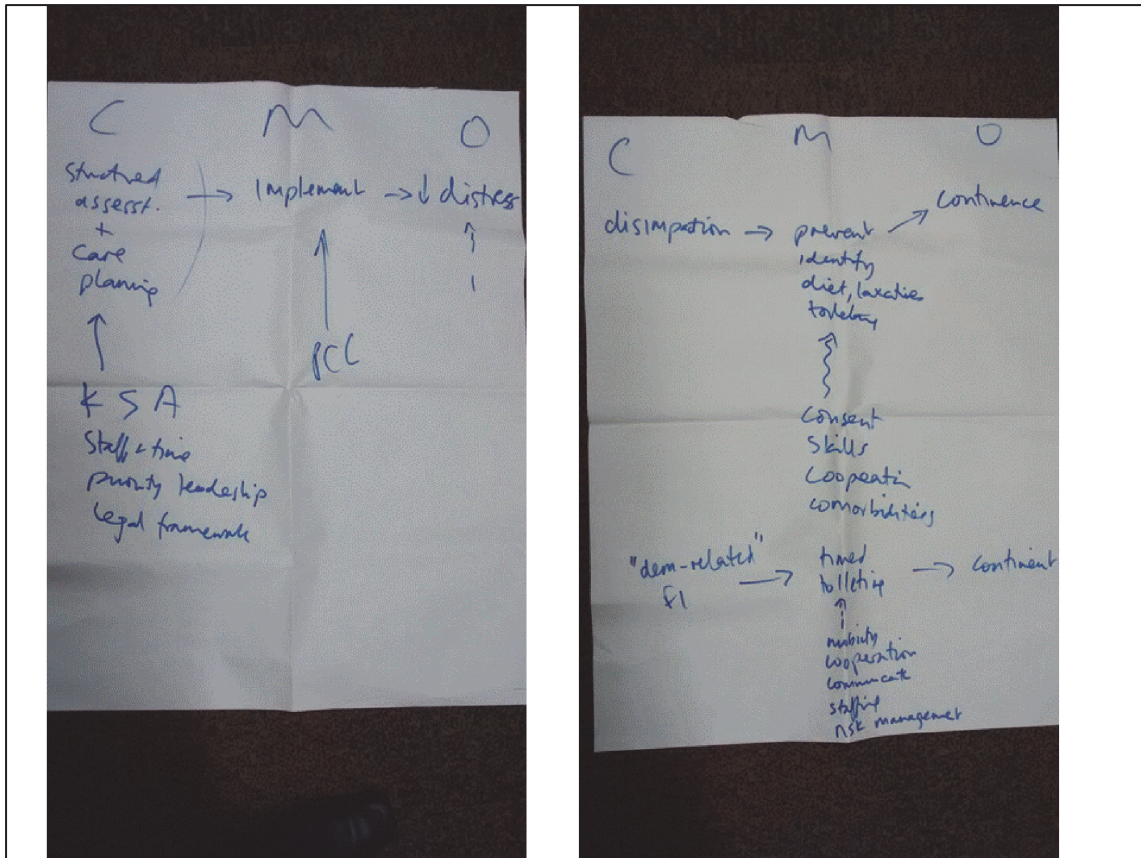 C M O
structured
assesst.
+
care
planning
→ implement → ↓ distress
PCC
K S A
Staff + time
priority leadership
Legal framework
C M O
disimpation → prevent → continence
identify
diet, laxaties
toileting
consent
skills
cooperatin
comorbidities
"dem-related"
FI
→ timed
toileting → continent
mobility
cooperation
communicate
staffing
risk managemet